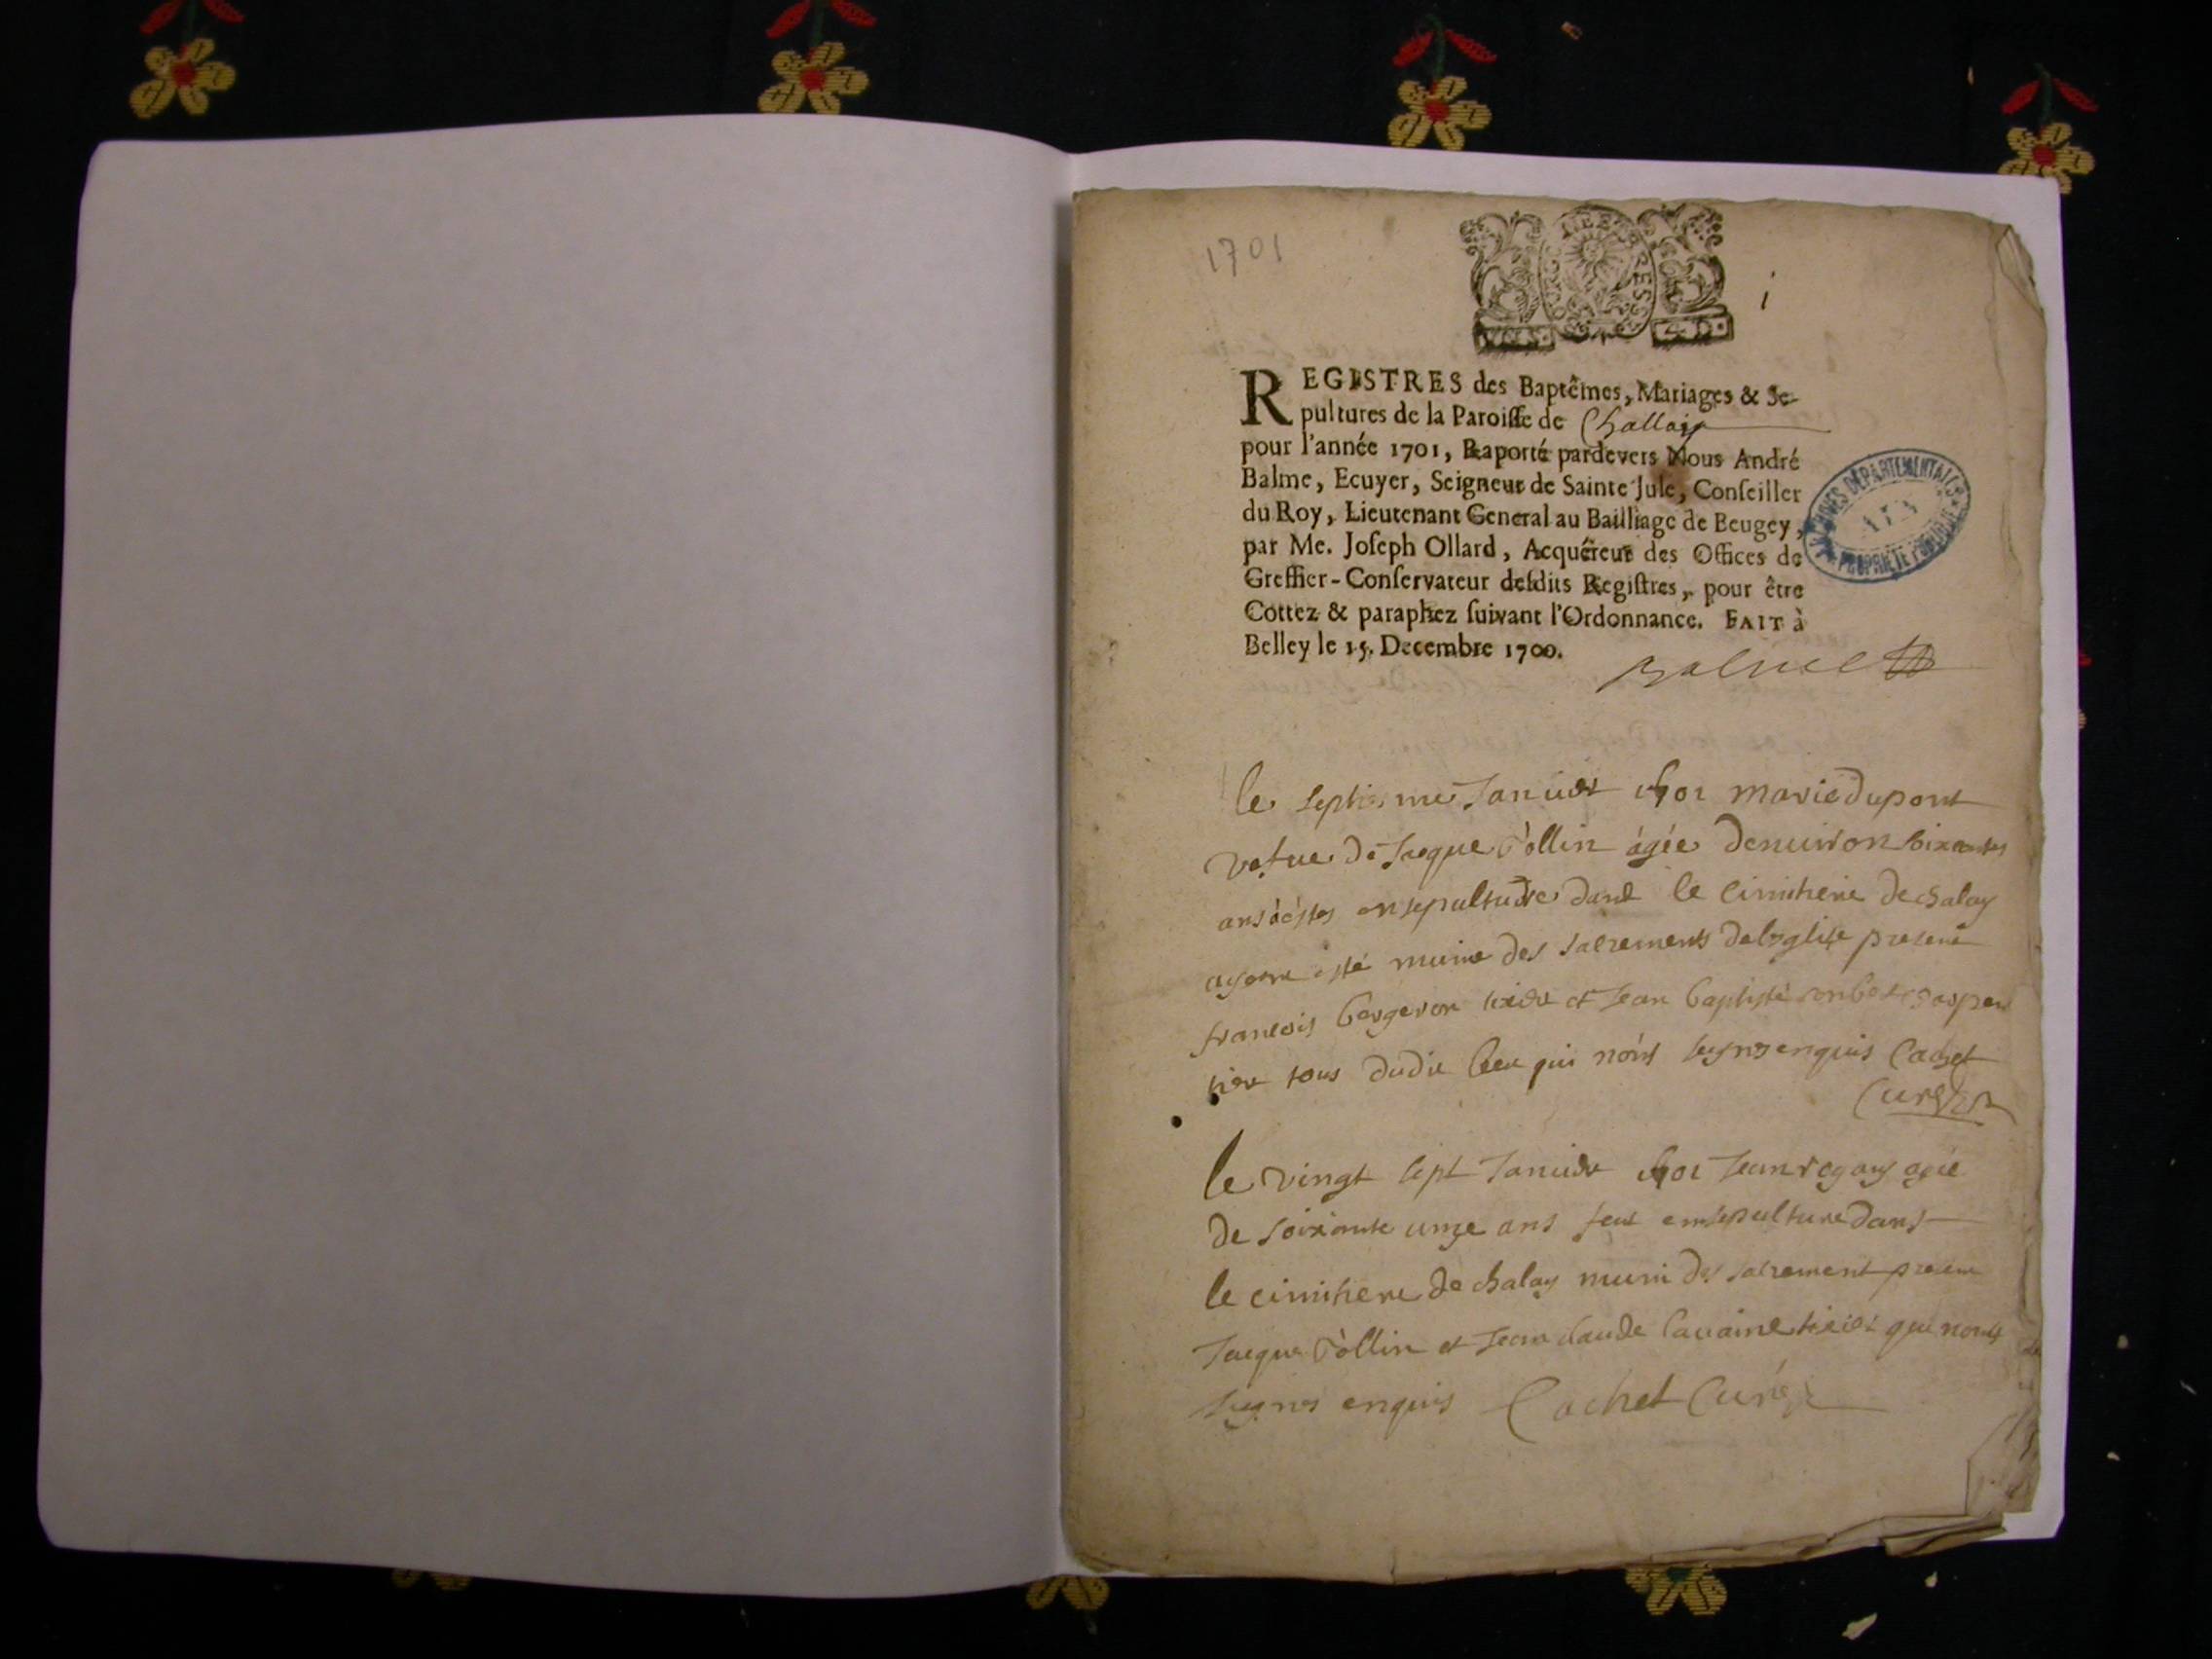 1701
i
REGISTRES des Baptêmes, Mariages & Se-
pultures de la Paroisse de Challay
pour l'année 1701, Raporté pardevers Nous André
Balme, Ecuyer, Seigneur de Sainte Jule, Conseiller
du Roy, Lieutenant General au Bailliage de Beugey,
par Me. Joseph Ollard, Acquéreur des Offices de
Greffier-Conservateur desdits Registres, pour être
Cottez & paraphez suivant l'Ordonnance. FAIT à
Belley le 15. Decembre 1700.
Balme
ARCHIVES DÉPARTEMENTALES
PROPRIÉTÉ PUBLIQUE
le septiesme Janvier 1701 marie dupont
vefve de Jacque Collin ágée denuiron soixantes
ans áéstes ensepulturée dans le cimitiere de chalay
ayant esté munie des sacrements de leglise present
francois bergeron tixier et Jean baptiste charpen
tier tous dudit lieu qui nónt sygnes enquis Cachet
Curé
le vingt sept Janvier 1701 Jean regay agée
de soixante unze ans feut ensepulture dans
le cimitiere de chalay muni des sacrement present
Jacque Cóllin et Jean claude tixier qui nont
sygnes enquis Cachet Curé